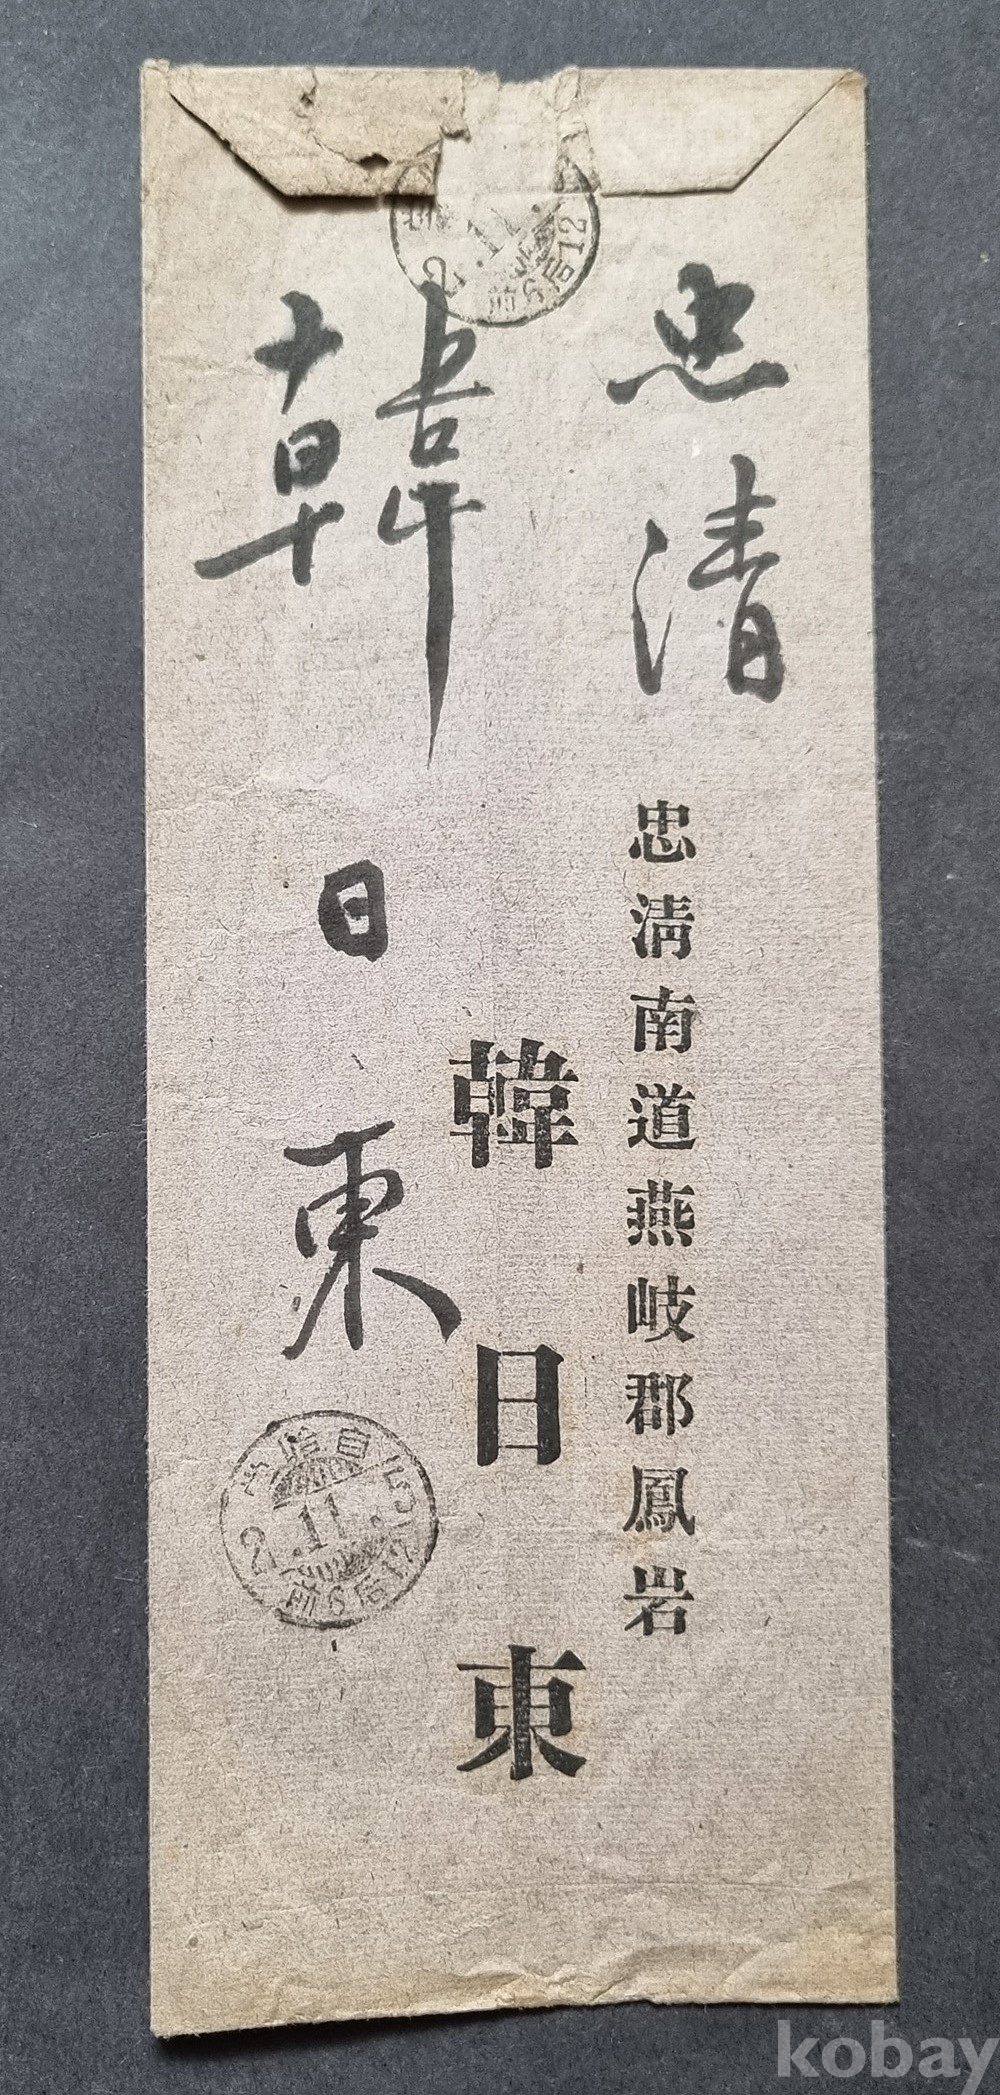 忠清
韓日東
忠淸南道燕岐郡鳳岩
韓日東
2.11.
前8后12
2.11.5
前8后12
kobay